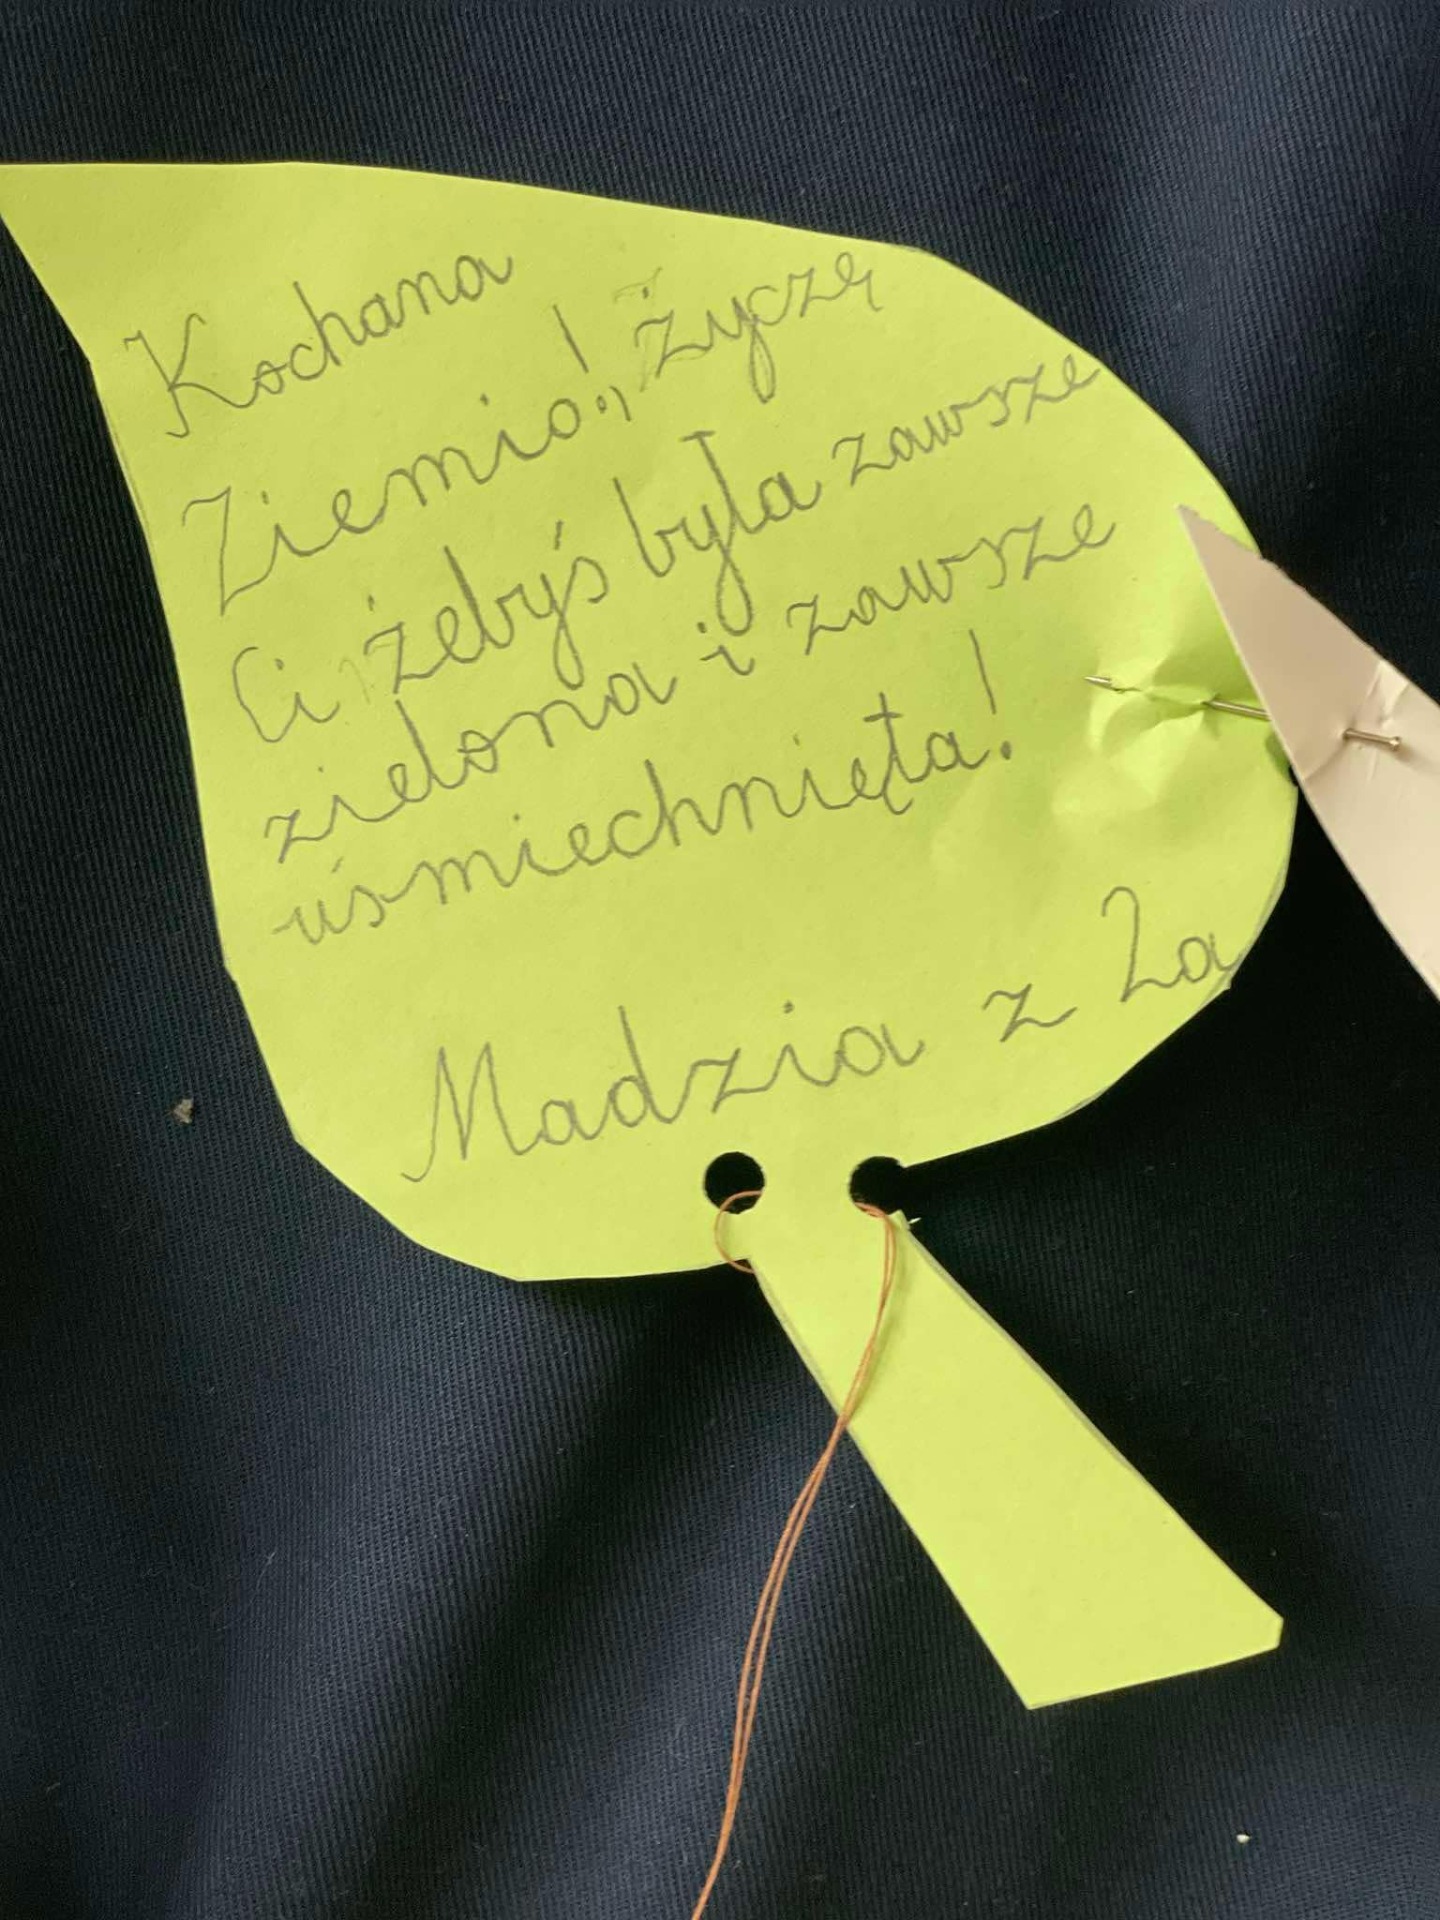 Kochana
Ziemio!, Życzę
Ci żebyś była zawsze
zielona i zawsze
uśmiechnięta!
Madzia z 2a